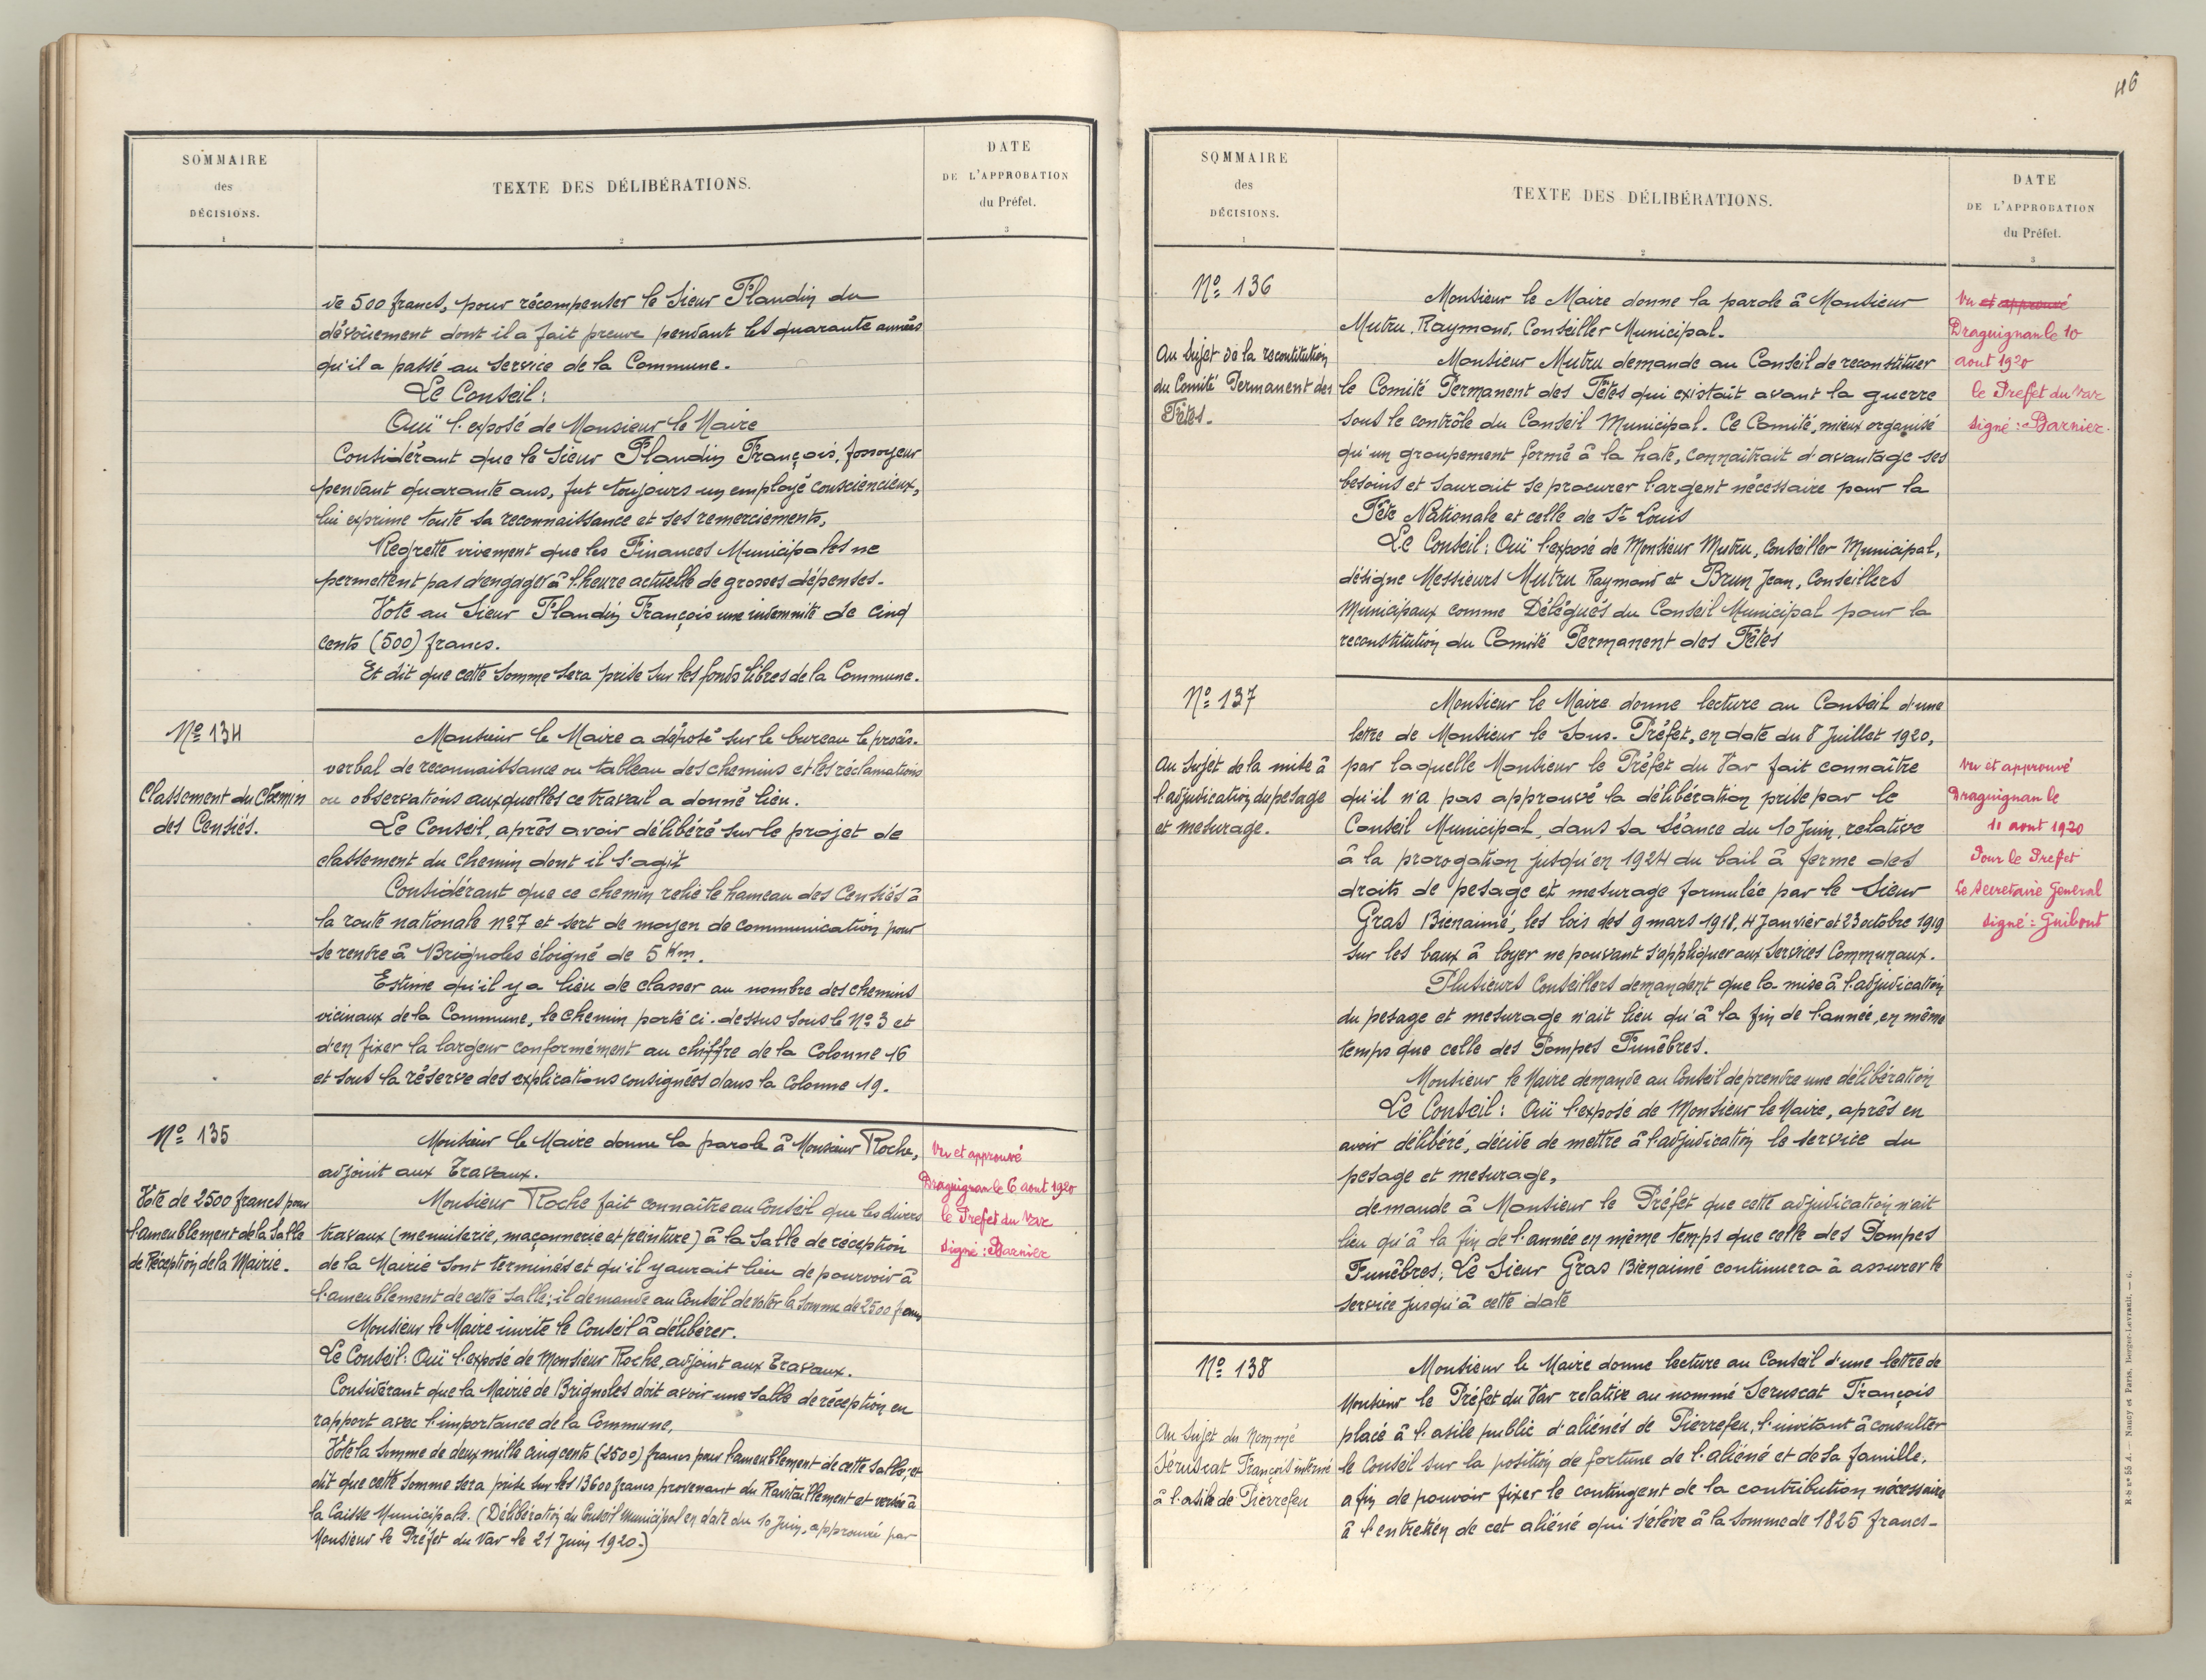 SOMMAIRE
des
DÉCISIONS.
1
TEXTE DES DÉLIBÉRATIONS.
2
DATE
DE L'APPROBATION
du Préfet.
3
de 500 francs, pour récompenser le Sieur Flandin du
dévouement dont il a fait preuve pendant les quarante années
qu'il a passé au service de la Commune.
Le Conseil:
Ouï l'exposé de Monsieur le Maire
Considérant que le Sieur Flandin François, fossoyeur
pendant quarante ans, fut toujours un employé consciencieux,
lui exprime toute sa reconnaissance et ses remerciements,
Regrette vivement que les Finances Municipales ne
permettent pas d'engager à l'heure actuelle de grosses dépenses.
Vote au Sieur Flandin François une indemnité de cinq
cents (500) francs.
Et dit que cette somme sera prise sur les fonds libres de la Commune.
Nº 134
Classement du Chemin
des Censiés.
Monsieur le Maire a déposé sur le bureau le procès-
verbal de reconnaissance ou tableau des chemins et les réclamations
ou observations auxquelles ce travail a donné lieu.
Le Conseil, après avoir délibéré sur le projet de
classement du chemin dont il s'agit
Considérant que ce chemin relie le hameau des Censiés à
la route nationale nº 7 et sert de moyen de communication pour
se rendre à Brignoles éloigné de 5 Km.
Estime qu'il y a lieu de classer au nombre des chemins
vicinaux de la Commune, le chemin porté ci-dessus sous le Nº 3 et
d'en fixer la largeur conformément au chiffre de la Colonne 16
et sous la réserve des explications consignées dans la Colonne 19.
Nº 135
Vote de 2500 francs pour
l'ameublement de la Salle
de Réception de la Mairie.
Monsieur le Maire donne la parole à Monsieur Roche,
adjoint aux Travaux.
Monsieur Roche fait connaître au Conseil que les divers
travaux (menuiserie, maçonnerie et peinture) à la Salle de réception
de la Mairie sont terminés et qu'il y aurait lieu de pourvoir à
l'ameublement de cette salle; il demande au Conseil de voter la somme de 2500 francs
Monsieur le Maire invite le Conseil à délibérer.
Le Conseil: Ouï l'exposé de Monsieur Roche, adjoint aux Travaux.
Considérant que la Mairie de Brignoles doit avoir une salle de réception en
rapport avec l'importance de la Commune,
Vote la somme de deux mille cinq cents (2500) francs pour l'ameublement de cette salle, et
dit que cette somme sera prise sur les 13600 francs provenant du Ravitaillement et versés à
la Caisse Municipale. (Délibération du Conseil Municipal en date du 10 Juin, approuvé par
Monsieur le Préfet du Var le 21 Juin 1920.)
Vu et approuvé
Draguignan le 6 aout 1920
le Prefet du Var
signé: Barnier
46
SOMMAIRE
des
DÉCISIONS.
1
TEXTE DES DÉLIBÉRATIONS.
2
DATE
DE L'APPROBATION
du Préfet.
3
Nº 136
Au sujet de la reconstitution
du Comité Permanent des
Fêtes.
Monsieur le Maire donne la parole à Monsieur
Mutru Raymond, Conseiller Municipal.
Monsieur Mutru demande au Conseil de reconstituer
le Comité Permanent des Fêtes qui existait avant la guerre
sous le contrôle du Conseil Municipal. Ce Comité, mieux organisé
qu'un groupement formé à la hate, connaîtrait d'avantage ses
besoins et saurait se procurer l'argent nécessaire pour la
Fête Nationale et celle de St Louis
Le Conseil: Ouï l'exposé de Monsieur Mutru, Conseiller Municipal,
désigne Messieurs Mutru Raymond et Brun Jean, Conseillers
Municipaux comme Délégués du Conseil Municipal pour la
reconstitution du Comité Permanent des Fêtes
Vu et approuvé
Draguignan le 10
aout 1920
le Prefet du Var
signé: Barnier.
Nº 137
Au sujet de la mise à
l'adjudication du pesage
et mesurage.
Monsieur le Maire donne lecture au Conseil d'une
lettre de Monsieur le Sous-Préfet, en date du 8 Juillet 1920,
par laquelle Monsieur le Préfet du Var fait connaître
qu'il n'a pas approuvé la délibération prise par le
Conseil Municipal, dans sa séance du 10 Juin, relative
à la prorogation jusqu'en 1924 du bail à ferme des
droits de pesage et mesurage formulée par le Sieur
Gras Bienaimé, les lois des 9 mars 1918, 4 Janvier et 23 octobre 1919
sur les baux à loyer ne pouvant s'appliquer aux Services Communaux.
Plusieurs Conseillers demandent que la mise à l'adjudication
du pesage et mesurage n'ait lieu qu'à la fin de l'année, en même
temps que celle des Pompes Funèbres.
Monsieur le Maire demande au Conseil de prendre une délibération
Le Conseil: Ouï l'exposé de Monsieur le Maire, après en
avoir délibéré, décide de mettre à l'adjudication le service du
pesage et mesurage,
demande à Monsieur le Préfet que cette adjudication n'ait
lieu qu'à la fin de l'année en même temps que celle des Pompes
Funèbres; Le Sieur Gras Bienaimé continuera à assurer le
service jusqu'à cette date
Vu et approuvé
Draguignan le
11 aout 1920
Pour le Prefet
Le Secretaire General
signé: Guibout
Nº 138
Au sujet du nommé
Séruscat François interné
à l'asile de Pierrefeu
Monsieur le Maire donne lecture au Conseil d'une lettre de
Monsieur le Préfet du Var relative au nommé Seruscat François
placé à l'asile public d'aliénés de Pierrefeu, l'invitant à consulter
le Conseil sur la position de fortune de l'aliéné et de sa famille,
afin de pouvoir fixer le contingent de la contribution nécessaire
à l'entretien de cet aliéné qui s'élève à la somme de 1825 francs-
R-S nº 55 A. — Nancy et Paris. Berger-Levrault. — 6.